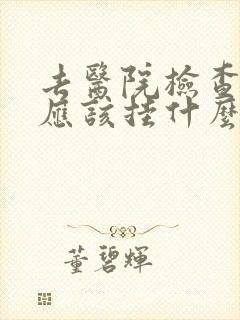 去醫院檢查
應該挂什麽
董碧輝